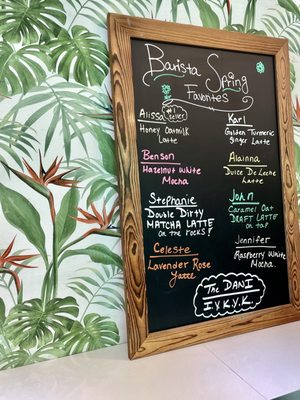 Barista Spring
Favorites
Alissa
#1 Seller
Honey Oatmilk
Latte
Karl
Golden Turmeric
Ginger Latte
Benson
Hazelnut White
Mocha
Alainna
Dulce De Leche
Latte
Stephanie
Double Dirty
MATCHA LATTE
on the rocks!
John
Caramel Oat
DRAFT LATTE
on tap
Celeste
Lavender Rose
Latte
Jennifer
Raspberry White
Mocha
The DANI
I.Y.K.Y.K.